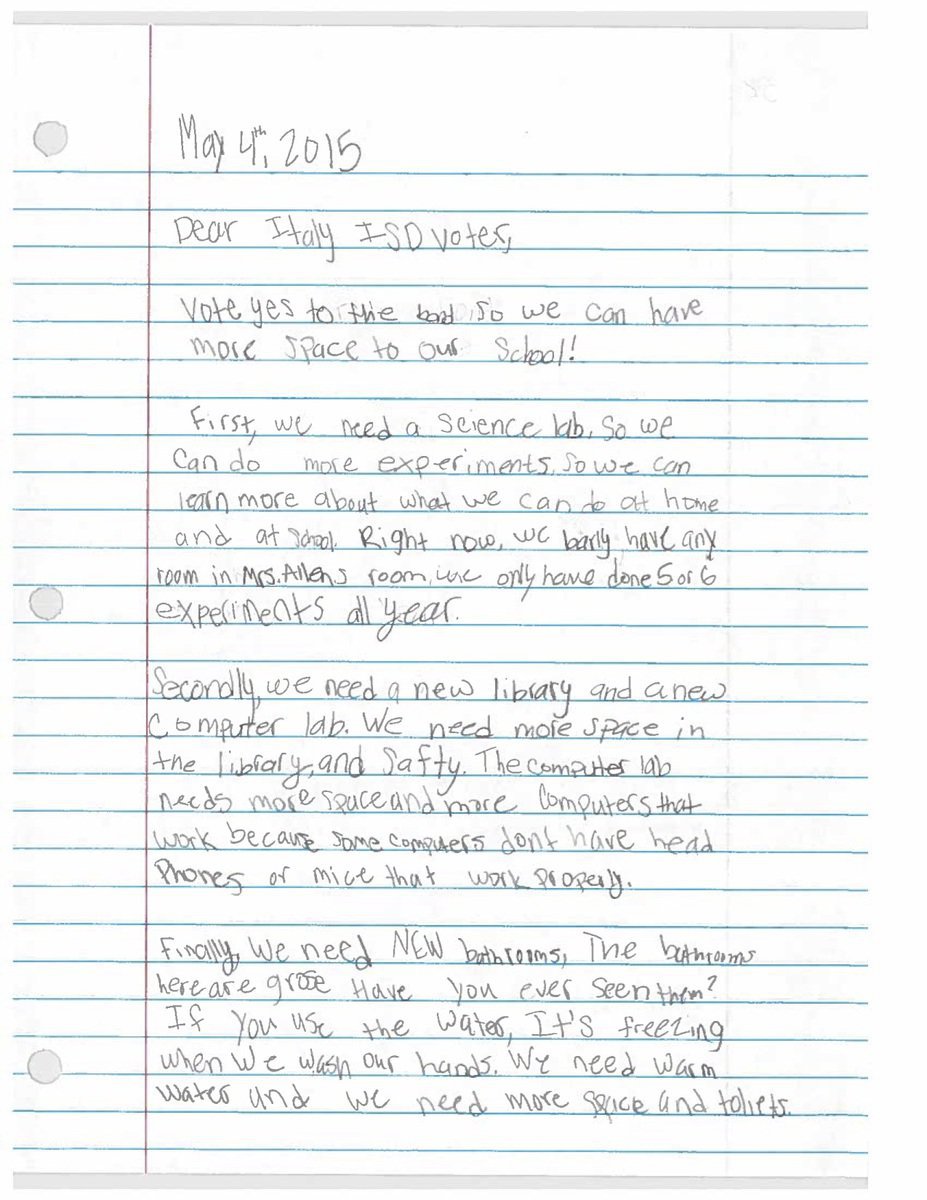 May 4th, 2015
Dear Italy ISD voter,
Vote yes to the bond, so we can have
more space to our School!
First, we need a science lab. So we
can do more experiments. So we can
learn more about what we can do at home
and at school. Right now, we barly have any
room in Mrs. Allens room, we only have done 5 or 6
experiments all year.
Secondly, we need a new library and a new
computer lab. We need more space in
the library, and Safty. The computer lab
needs more space and more computers that
work because some computers dont have head
phones or mice that work properly.
Finally, We need NEW bathrooms, The bathrooms
here are grose Have you ever seen them?
If you use the water, It's freezing
when we wash our hands. We need warm
water and we need more space and toliets.